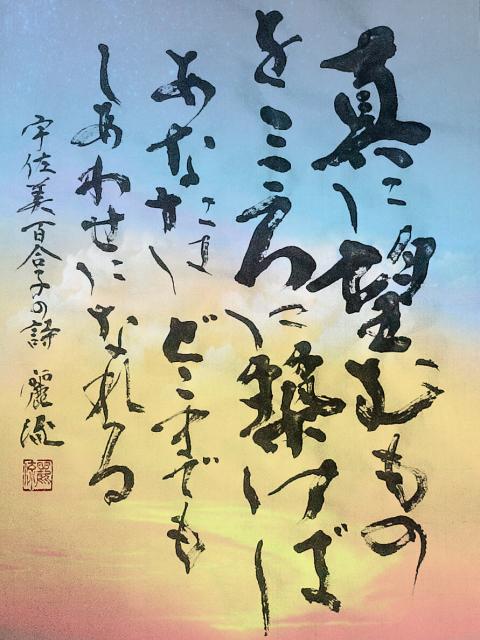 真に望むもの
をこころに築けば
あなたは どこまでも
しあわせになれる
宇佐美百合子の詩 麗